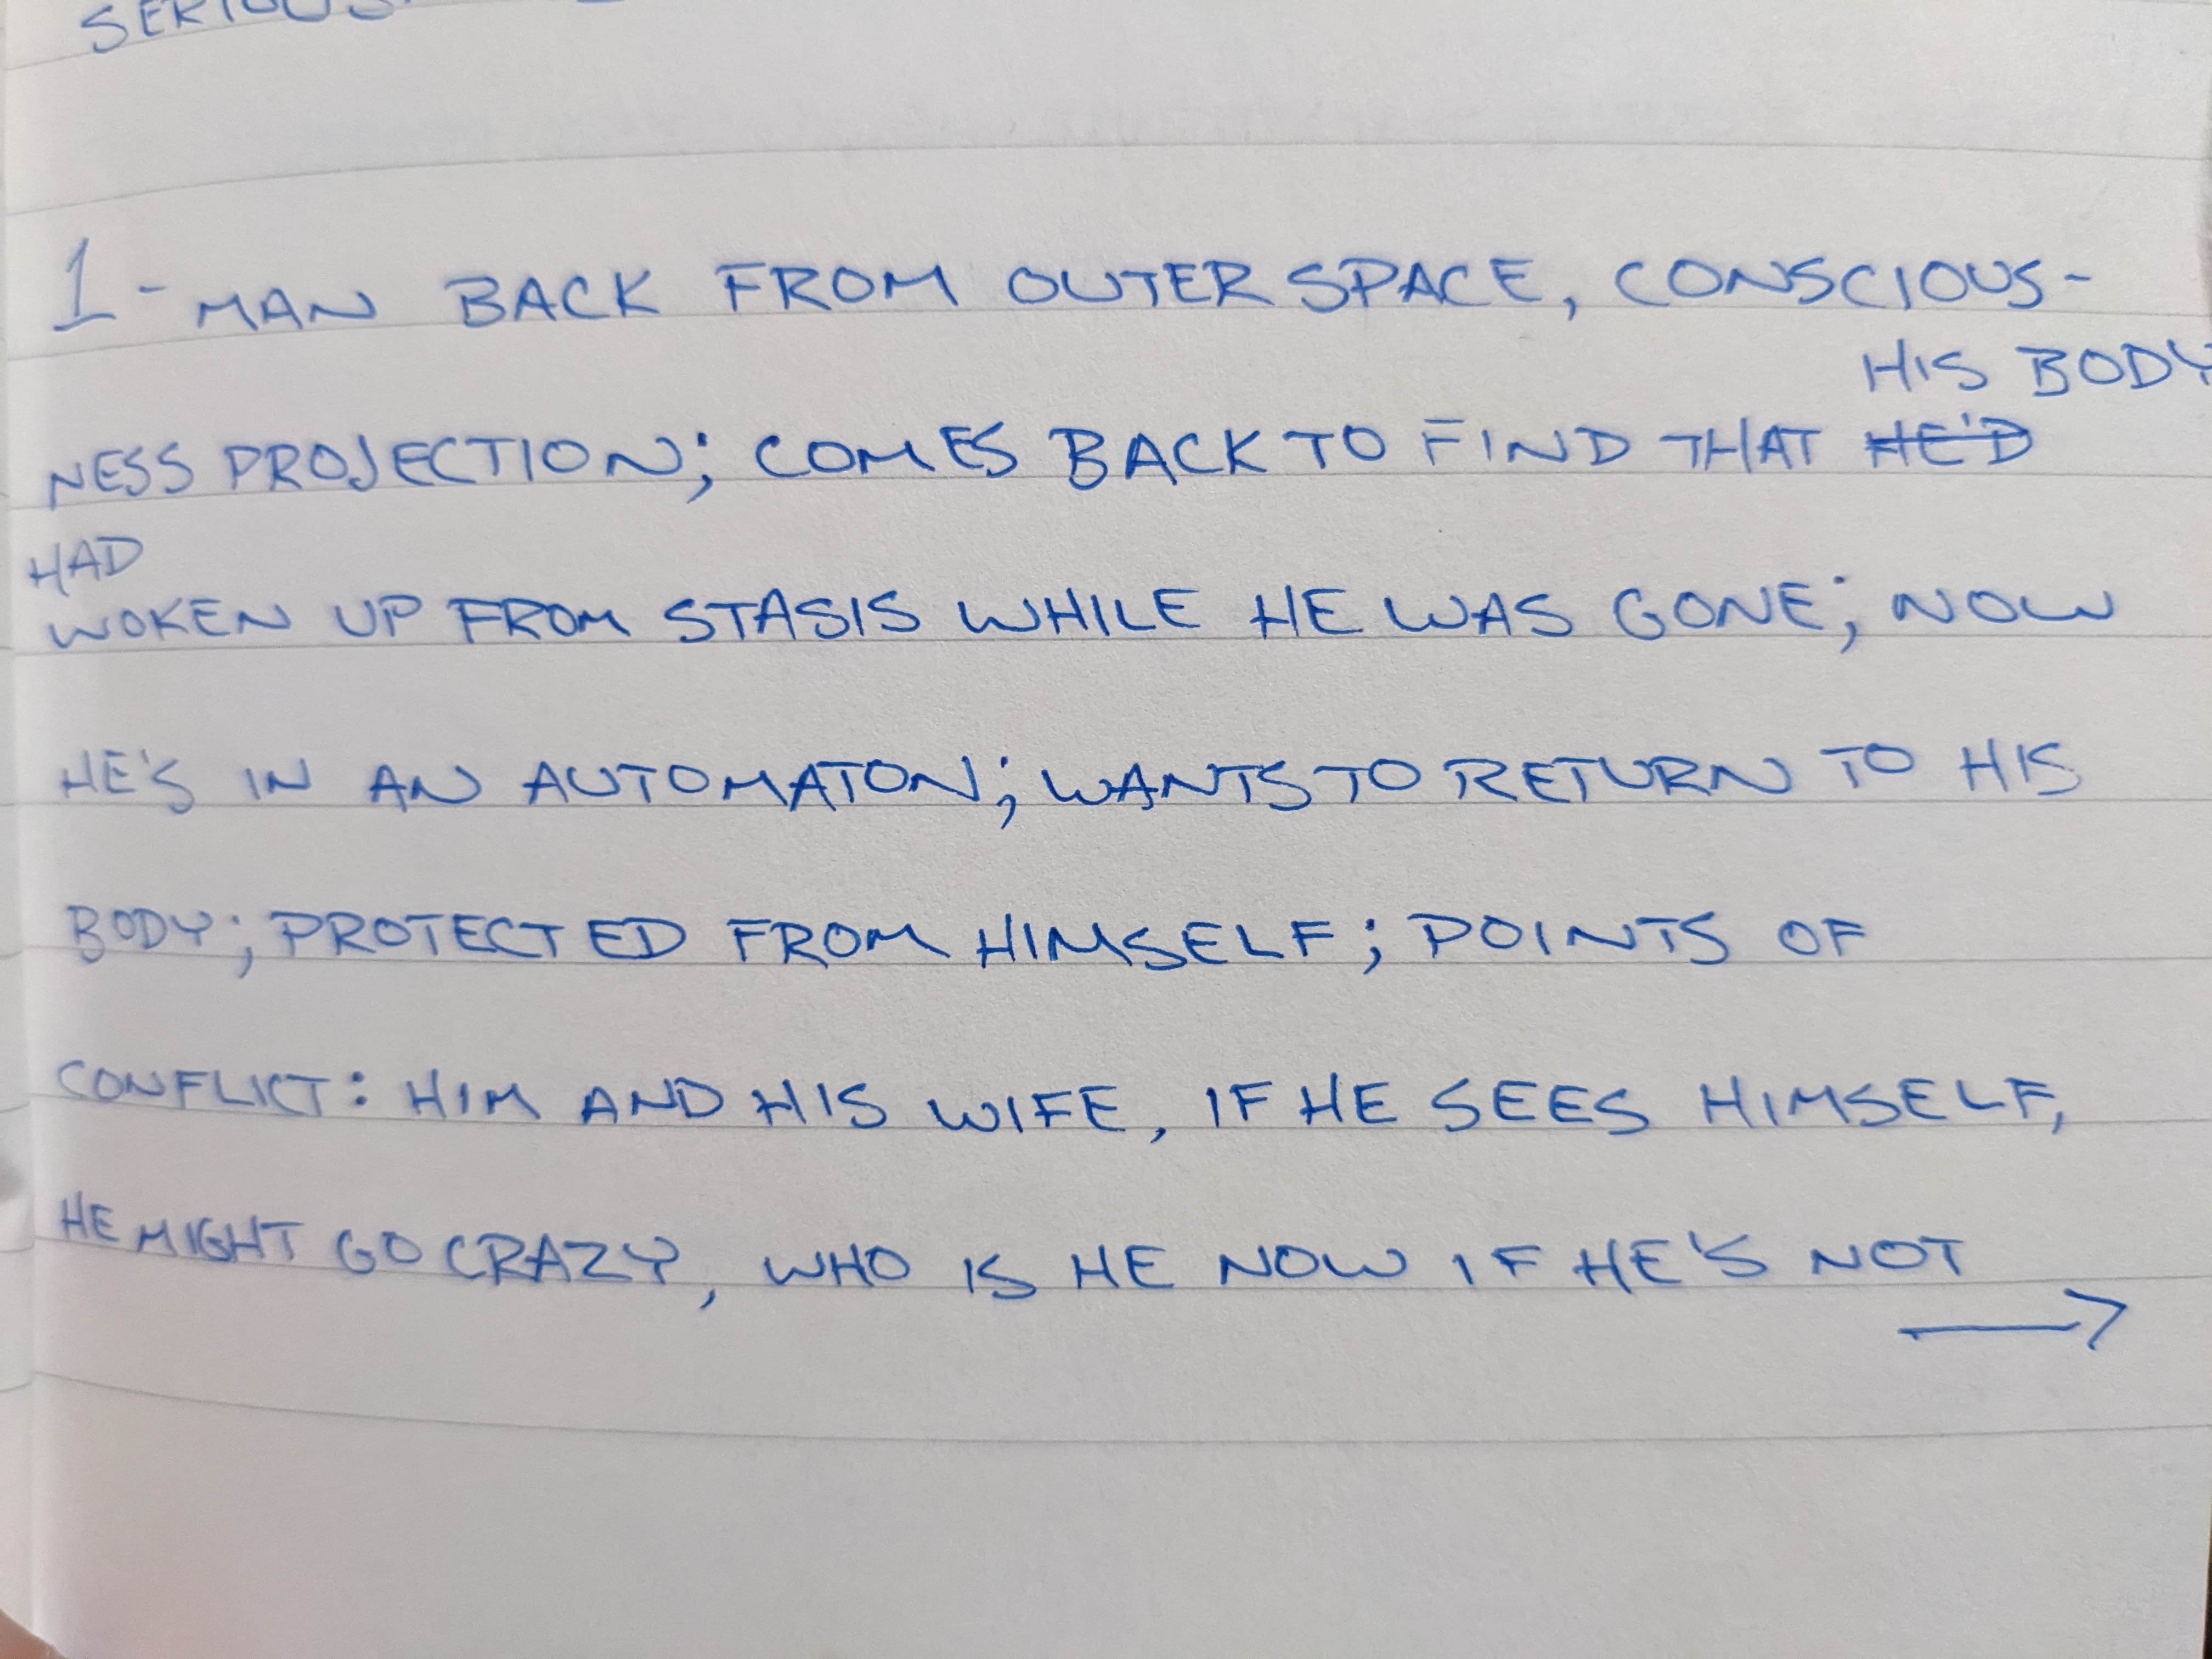 1 - MAN BACK FROM OUTER SPACE, CONSCIOUS-
HIS BODY
NESS PROJECTION; COMES BACK TO FIND THAT HE'D
HAD
WOKEN UP FROM STASIS WHILE HE WAS GONE; NOW
HE'S IN AN AUTOMATON; WANTS TO RETURN TO HIS
BODY; PROTECTED FROM HIMSELF; POINTS OF
CONFLICT: HIM AND HIS WIFE, IF HE SEES HIMSELF,
HE MIGHT GO CRAZY, WHO IS HE NOW IF HE'S NOT
→